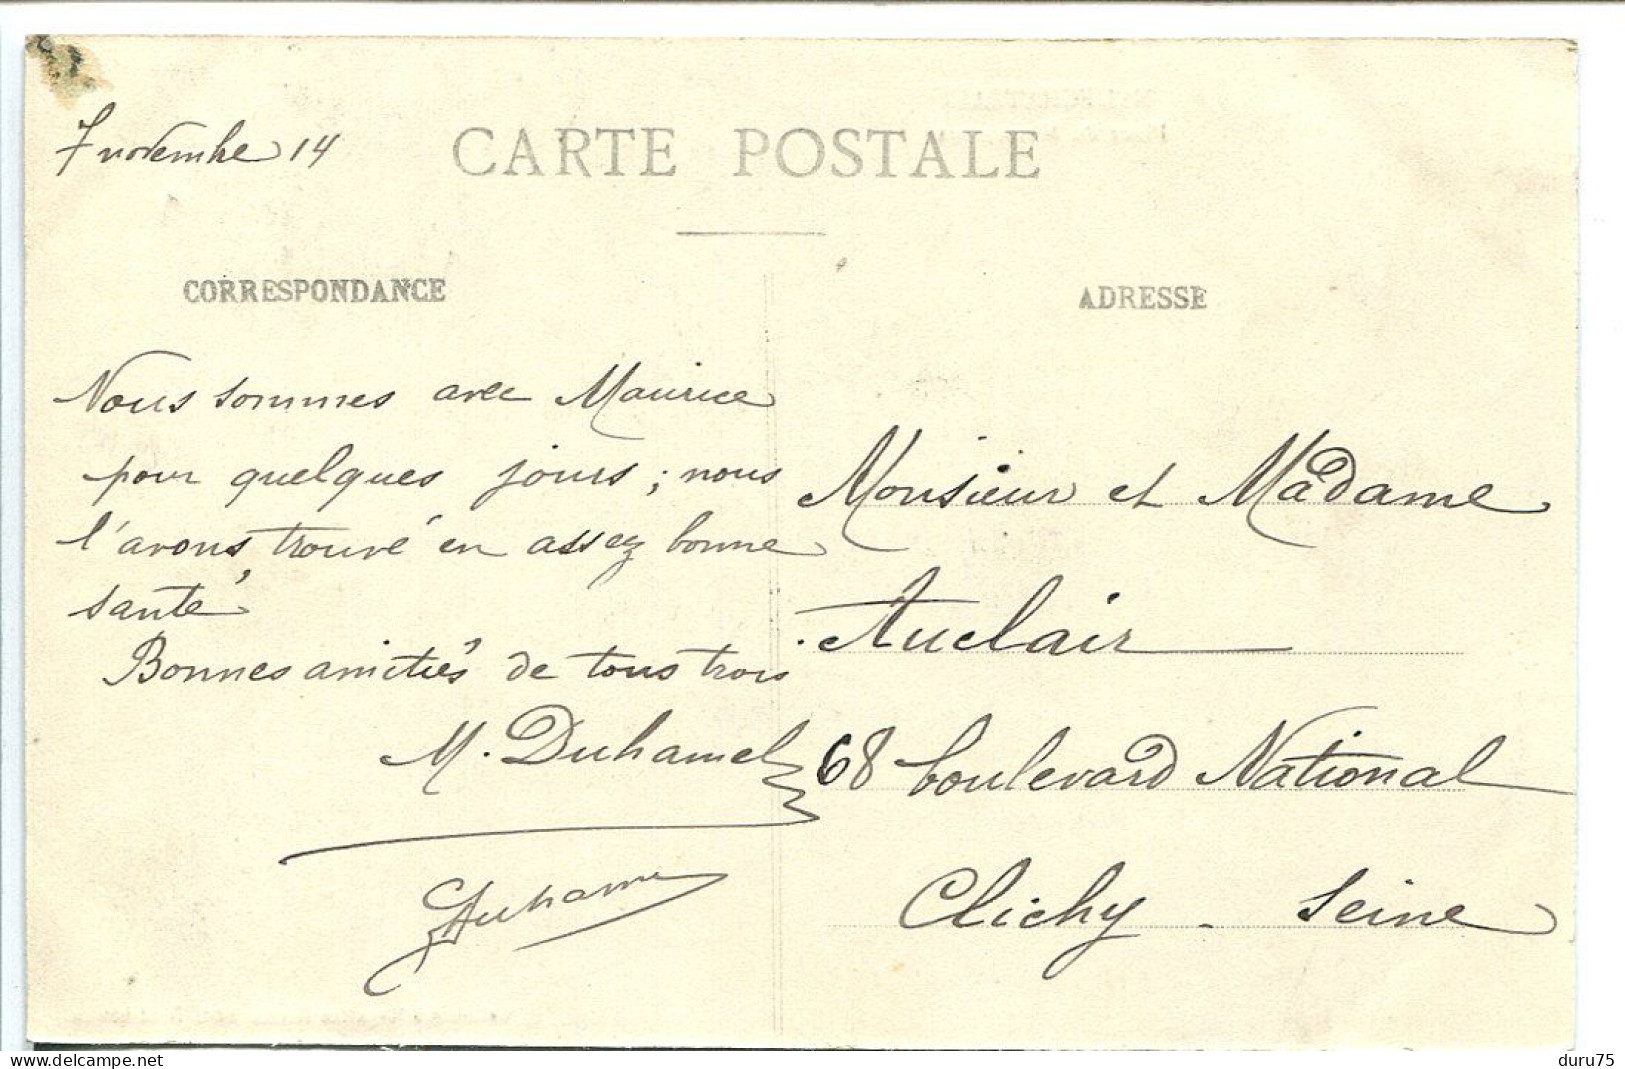 7 novembre 14
CARTE POSTALE
CORRESPONDANCE
Nous sommes avec Maurice
pour quelques jours ; nous
l'avons trouvé en assez bonne
santé
Bonnes amitiés de tous trois
M. Duhamel
Duhamel
ADRESSE
Monsieur et Madame
Auclair
68 boulevard National
Clichy - Seine
www.delcampe.net
duru75